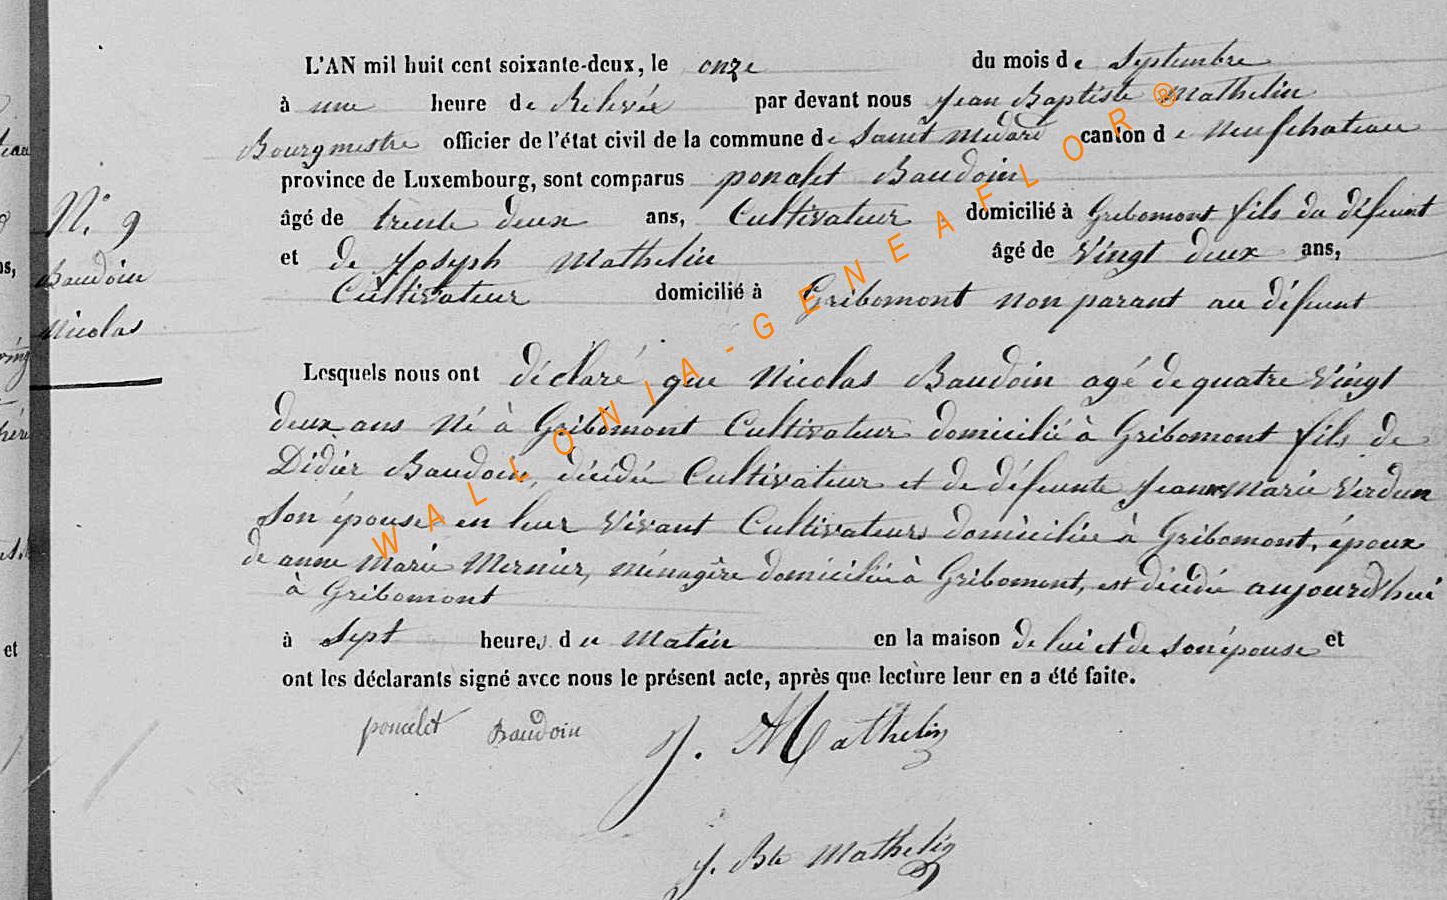 L'AN mil huit cent soixante-deux, le onze du mois de Septembre
à une heure de Relevée par devant nous Jean Baptiste Mathelin
Bourgmestre officier de l'état civil de la commune de Saint Médard canton de Neufchateau
province de Luxembourg, sont comparus poncelet Baudoin
âgé de trente deux ans, Cultivateur domicilié à Gribomont fils du défunt
et de Joseph Mathelin âgé de Vingt deux ans,
Cultivateur domicilié à Gribomont non parant au défunt
N.° 9
Baudoin
Nicolas
Lesquels nous ont déclaré que Nicolas Baudoin agé de quatre Vingt
deux ans Né à Gribomont Cultivateur domicilié à Gribomont fils de
Didier Baudoin, décédé Cultivateur et de défunte Jeanne Marie Verdun
Son épouse en leur Vivant Cultivateurs domiciliée à Gribomont, époux
de anne Marie Mernier, ménagère domiciliée à Gribomont, est décédé aujourd'hui
à Gribomont
à Sept heures du Matin en la maison de lui et de son épouse et
ont les déclarants signé avec nous le présent acte, après que lecture leur en a été faite.
poncelet Baudoin J. Mathelin
J. Bte Mathelin
WALLONIA-GENEAFLOR®